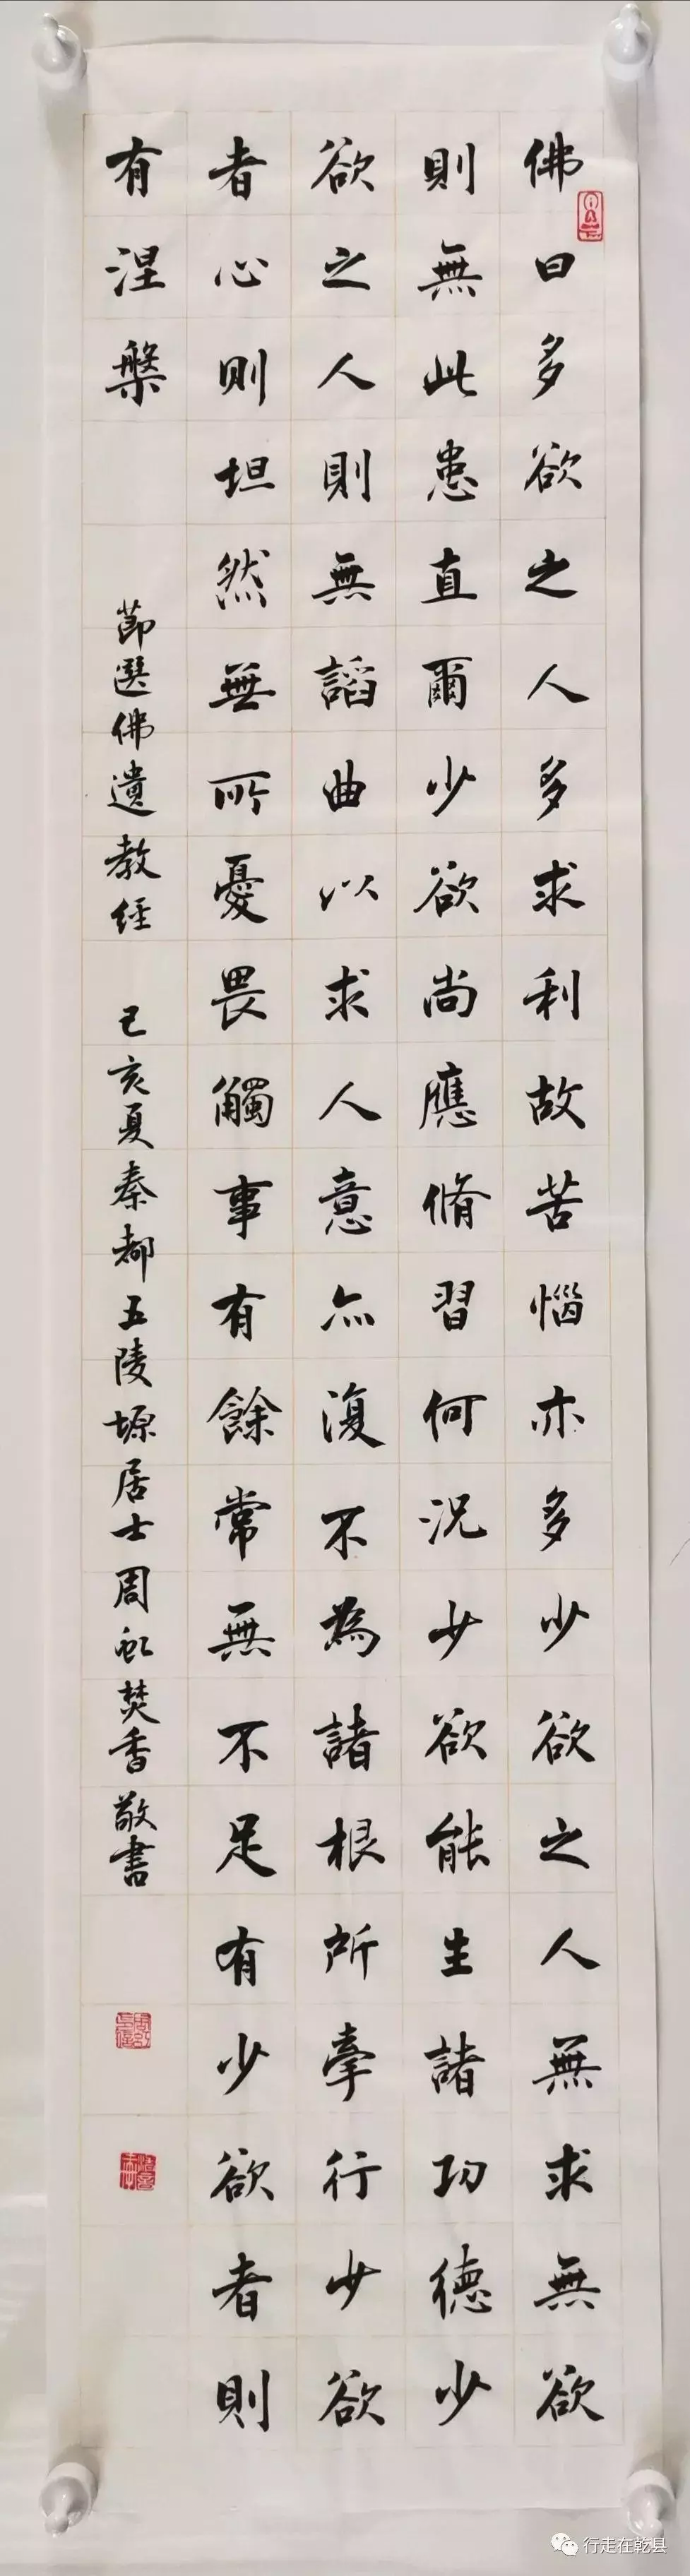 佛曰多欲之人多求利故苦惱亦多少欲之人無求無欲
則無此患直爾少欲尚應脩習何況少欲能生諸功德少
欲之人則無諂曲以求人意亦復不為諸根所牽行少欲
者心則坦然無所憂畏觸事有餘常無不足有少欲者則
有涅槃
節選佛遺教經 己亥夏秦都五陵塬居士周焚香敬書
行走在乾县